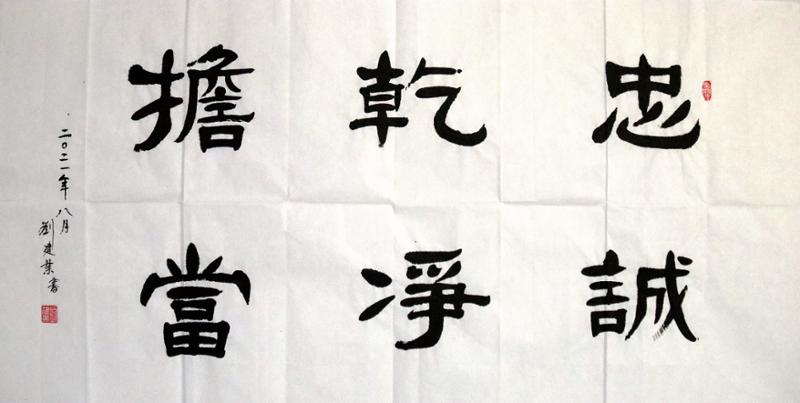 忠誠
乾淨
擔當
二〇二一年八月
劉建業書